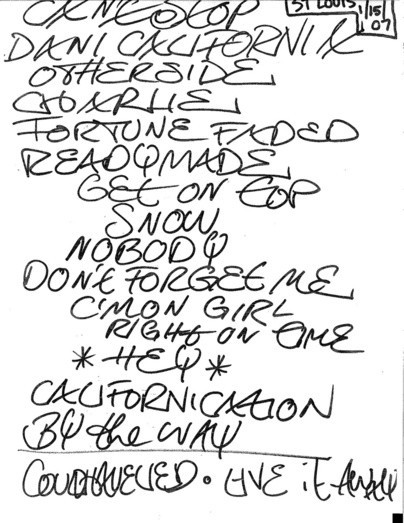 CAN'T STOP
ST LOUIS
1/15/
07
DANI CALIFORNIA
OTHERSIDE
CHARLIE
FORTUNE FADED
READYMADE
GET ON TOP
SNOW
NOBODY
DON'T FORGET ME
C'MON GIRL
RIGHT ON TIME
*HEY*
CALIFORNICATION
BY the WAY
COULDHAVELIED • GIVE it Away